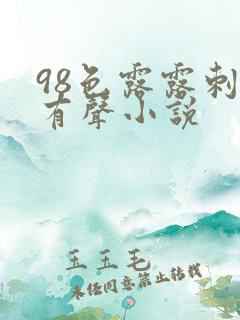 98色露露刺
有聲小説
玉玉毛
未经同意禁止转载